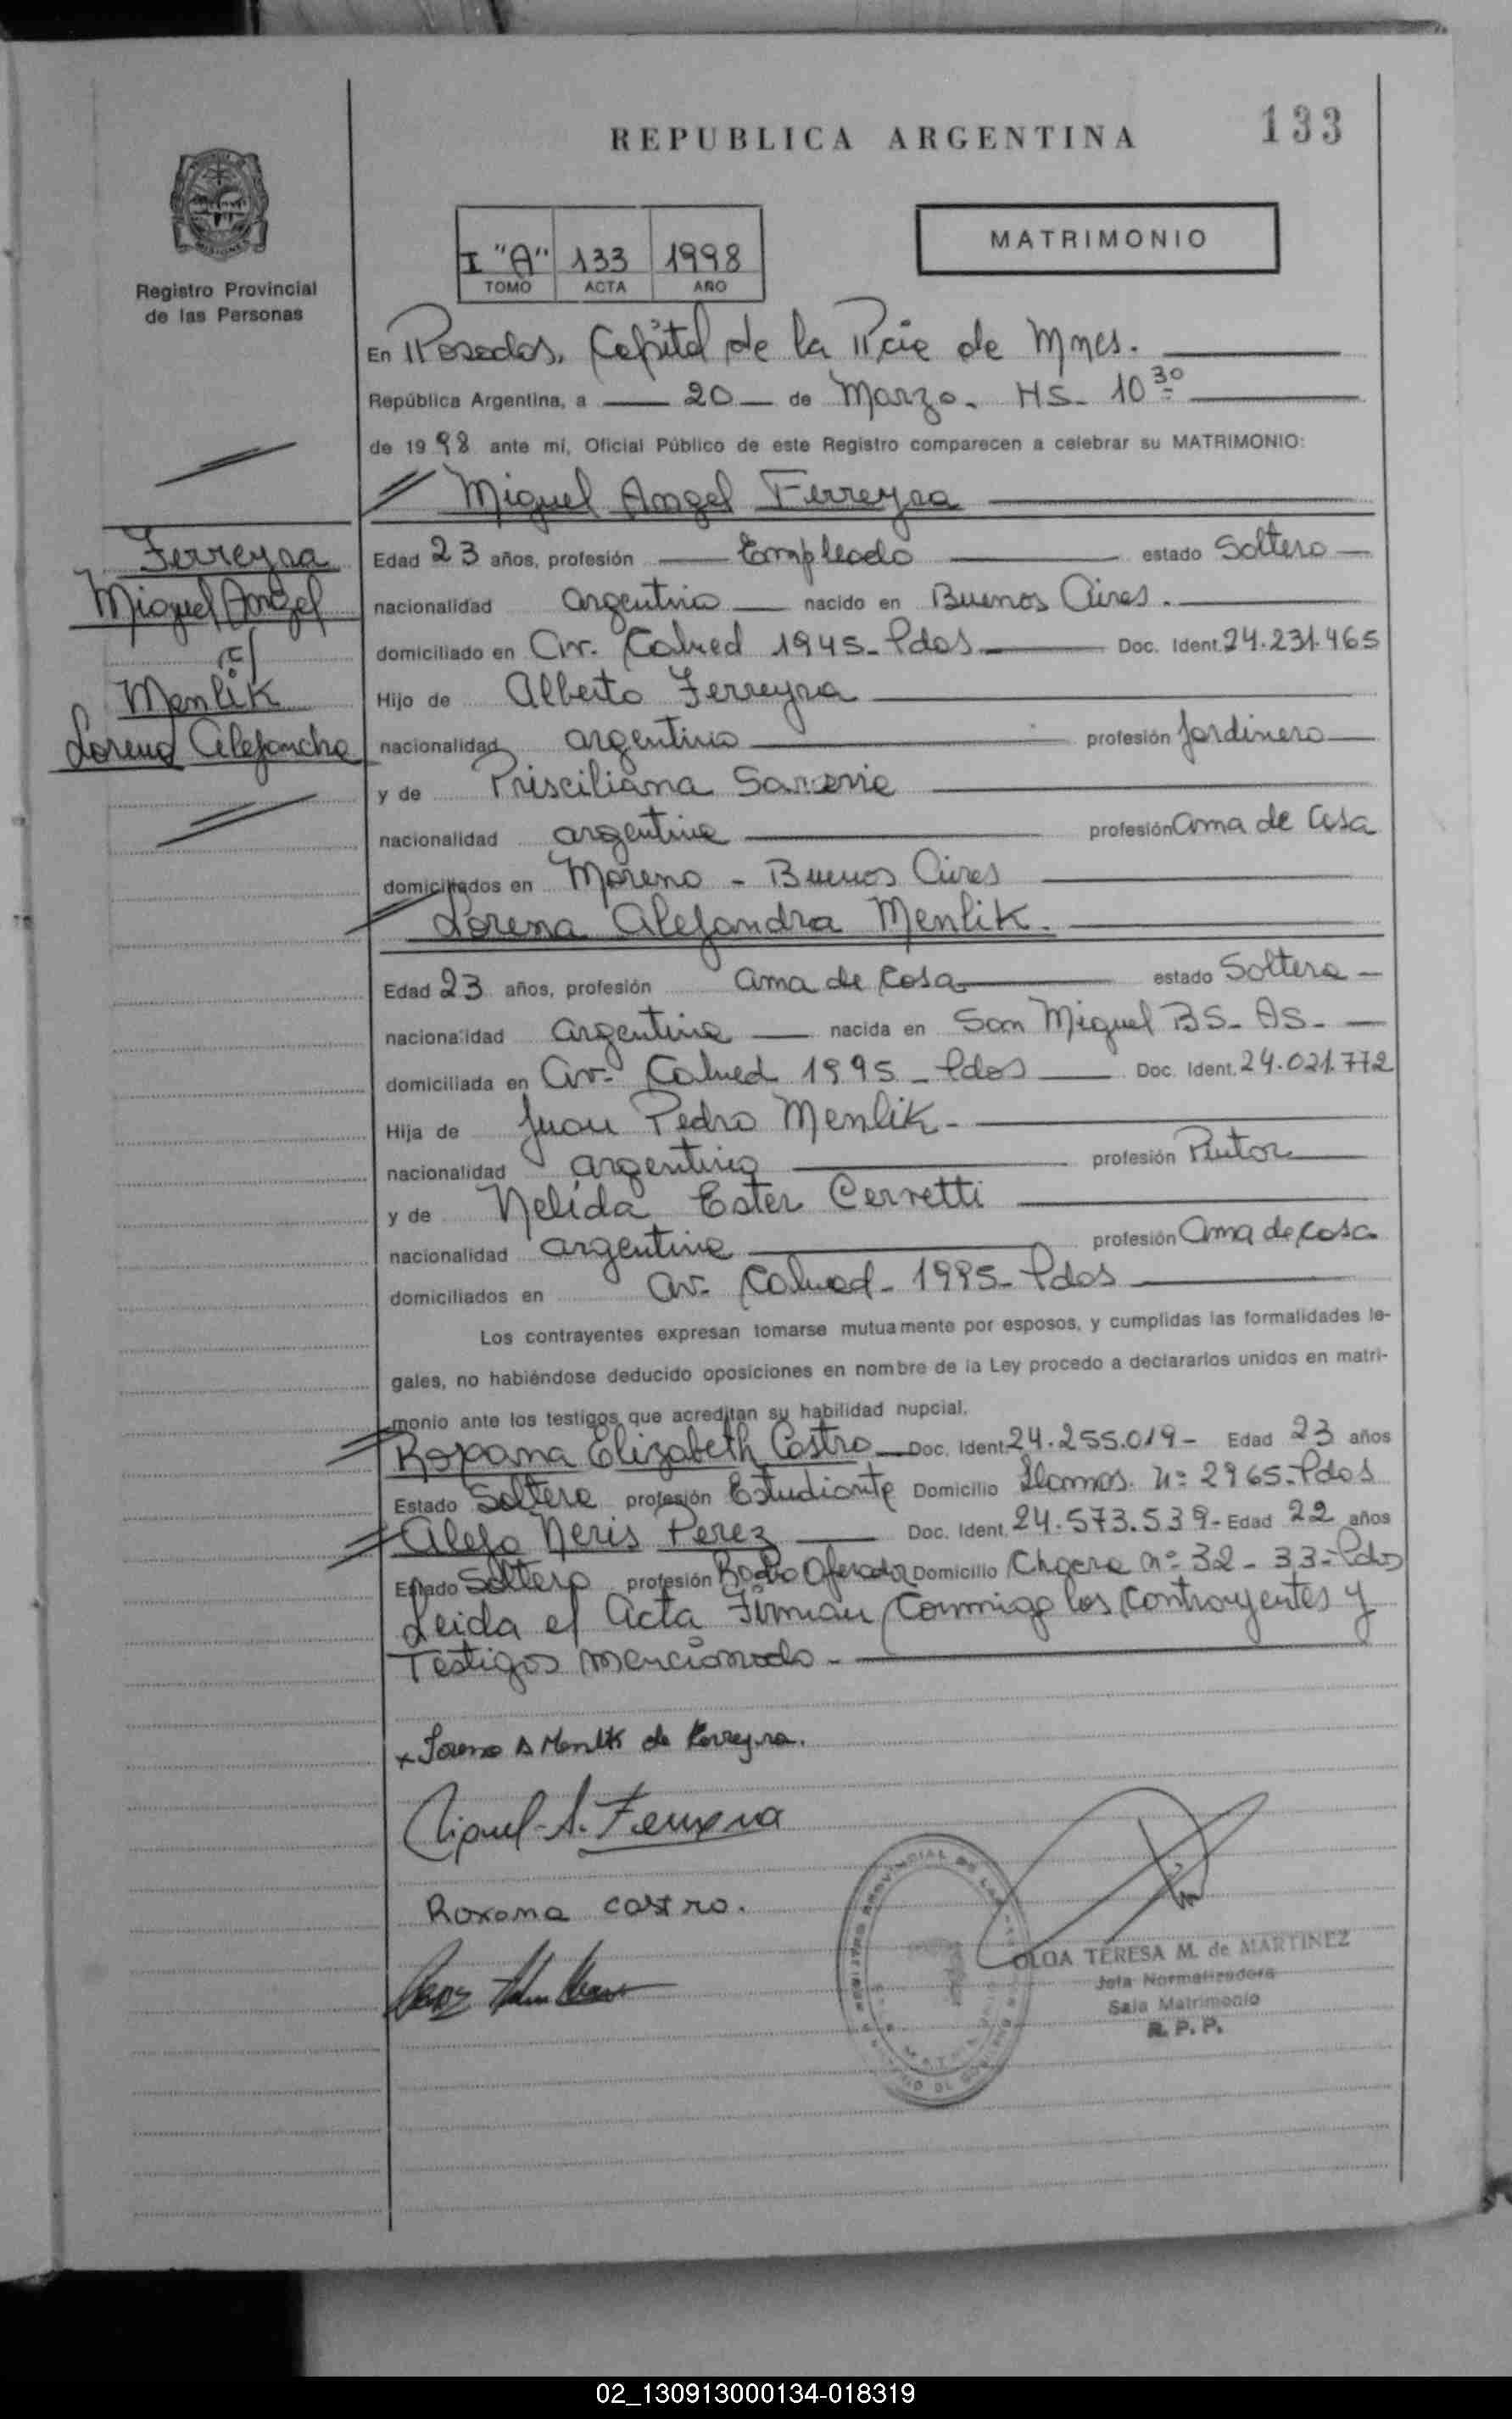 133
REPUBLICA ARGENTINA
MATRIMONIO
I "A" 133 1998
TOMO ACTA AÑO
Registro Provincial
de las Personas
En Posadas, Capital de la Pcia de Mnes.
República Argentina, a 20 de Marzo. HS. 10 30
de 1998 ante mí, Oficial Público de este Registro comparecen a celebrar su MATRIMONIO:
Miguel Angel Ferreyra
Ferreyra
Miguel Angel
c/
Menlik
Lorena Alejandra
Edad 23 años, profesión Empleado estado Soltero
nacionalidad argentina nacido en Buenos Aires.
domiciliado en Av. 1945 - Pdas Doc. Ident. 24.231.465
Hijo de Alberto Ferreyra
nacionalidad argentino profesión Jardinero
y de Prisciliana
nacionalidad argentina profesión ama de Casa
domiciliados en Moreno - Buenos Aires
Lorena Alejandra Menlik.
Edad 23 años, profesión ama de casa estado Soltera
nacionalidad argentina nacida en San Miguel BS. AS.
domiciliada en Av. 1995 - Pdas Doc. Ident. 24.021.772
Hija de Juan Pedro Menlik.
nacionalidad argentino profesión Pintor
y de Nelida Ester Cerretti
nacionalidad argentina profesión ama de casa
domiciliados en av. 1995 - Pdas
Los contrayentes expresan tomarse mutuamente por esposos, y cumplidas las formalidades le-
gales, no habiéndose deducido oposiciones en nombre de la Ley procedo a declararlos unidos en matri-
monio ante los testigos que acreditan su habilidad nupcial.
Roxana Elizabeth Castro Doc. Ident. 24.255.019 - Edad 23 años
Estado Soltera profesión Estudiante Domicilio Nº 2965 - Pdas
Alejo Neris Perez Doc. Ident. 24.573.539 - Edad 22 años
Estado Soltero profesión Radio Operador Domicilio Chacra nº 32 - 33 - Pdas
Leida el Acta Firman Conmigo los Contrayentes y
Testigos mencionado.
x Lorena A Menlik de Ferreyra.
Miguel A. Ferreyra
Roxana Castro.
OLGA TERESA M. de MARTINEZ
Jefa Normalizadora
Sala Matrimonio
R. P. P.
02_130913000134-018319